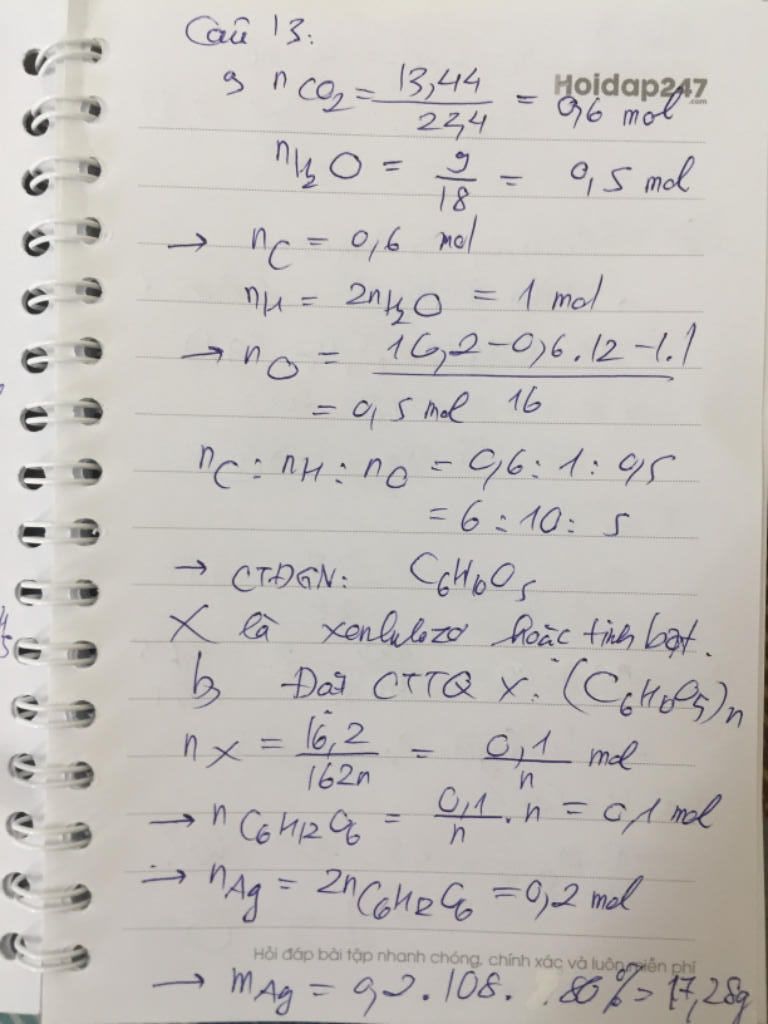 Câu 13:
a, nCO2 = 13,44 / 22,4 = 0,6 mol
Hoidap247
.com
nH2O = 9 / 18 = 0,5 mol
→ nC = 0,6 mol
nH = 2nH2O = 1 mol
→ nO = 16,2 - 0,6.12 - 1.1 / 16
= 0,5 mol
nC : nH : nO = 0,6 : 1 : 0,5
= 6 : 10 : 5
→ CTĐGN: C6H10O5
X là xenlulozơ hoặc tinh bột.
b, Đặt CTTQ X: (C6H10O5)n
nX = 16,2 / 162n = 0,1 / n mol
→ nC6H12O6 = 0,1 / n . n = 0,1 mol
→ nAg = 2nC6H12O6 = 0,2 mol
Hỏi đáp bài tập nhanh chóng, chính xác và luôn miễn phí
→ mAg = 0,2 . 108 . 80% = 17,28g